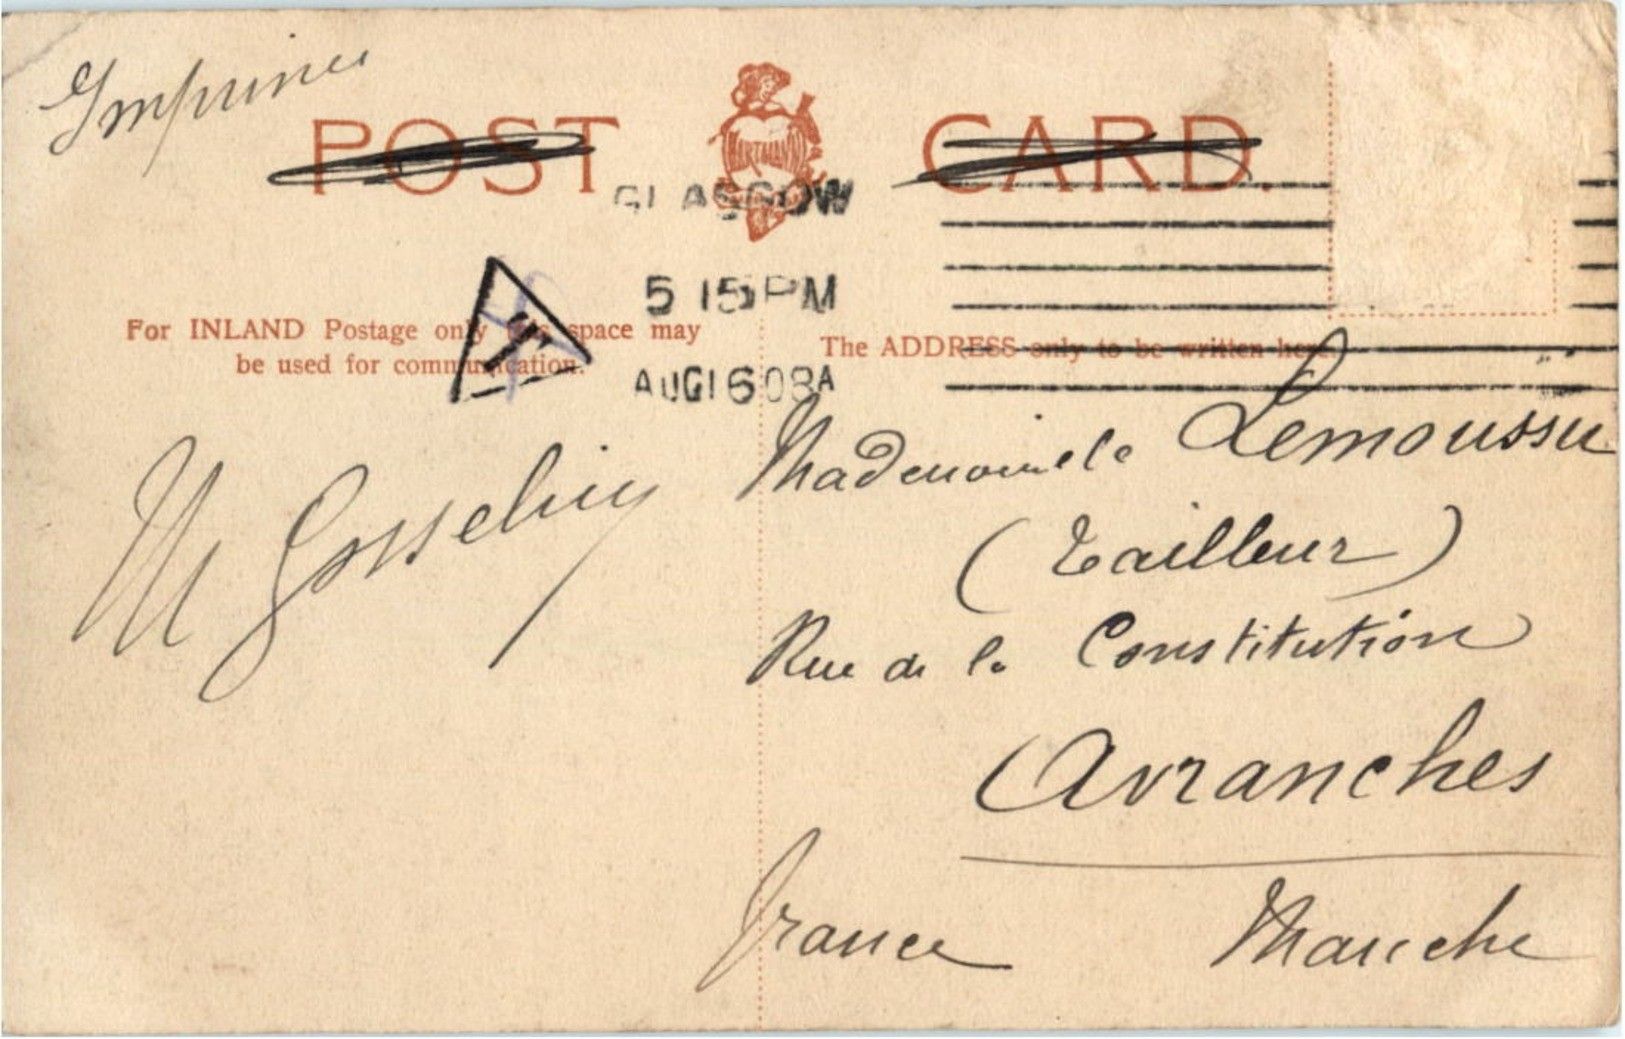 Imprimé
POST CARD.
HARTMANN
GLASGOW
5 15 PM
AUG 16 08 A
T
For INLAND Postage only this space may
be used for communication.
The ADDRESS only to be written here.
M Gosselin
Mademoiselle Lemoussu
(Tailleur)
Rue de la Constitution
Avranches
France Manche